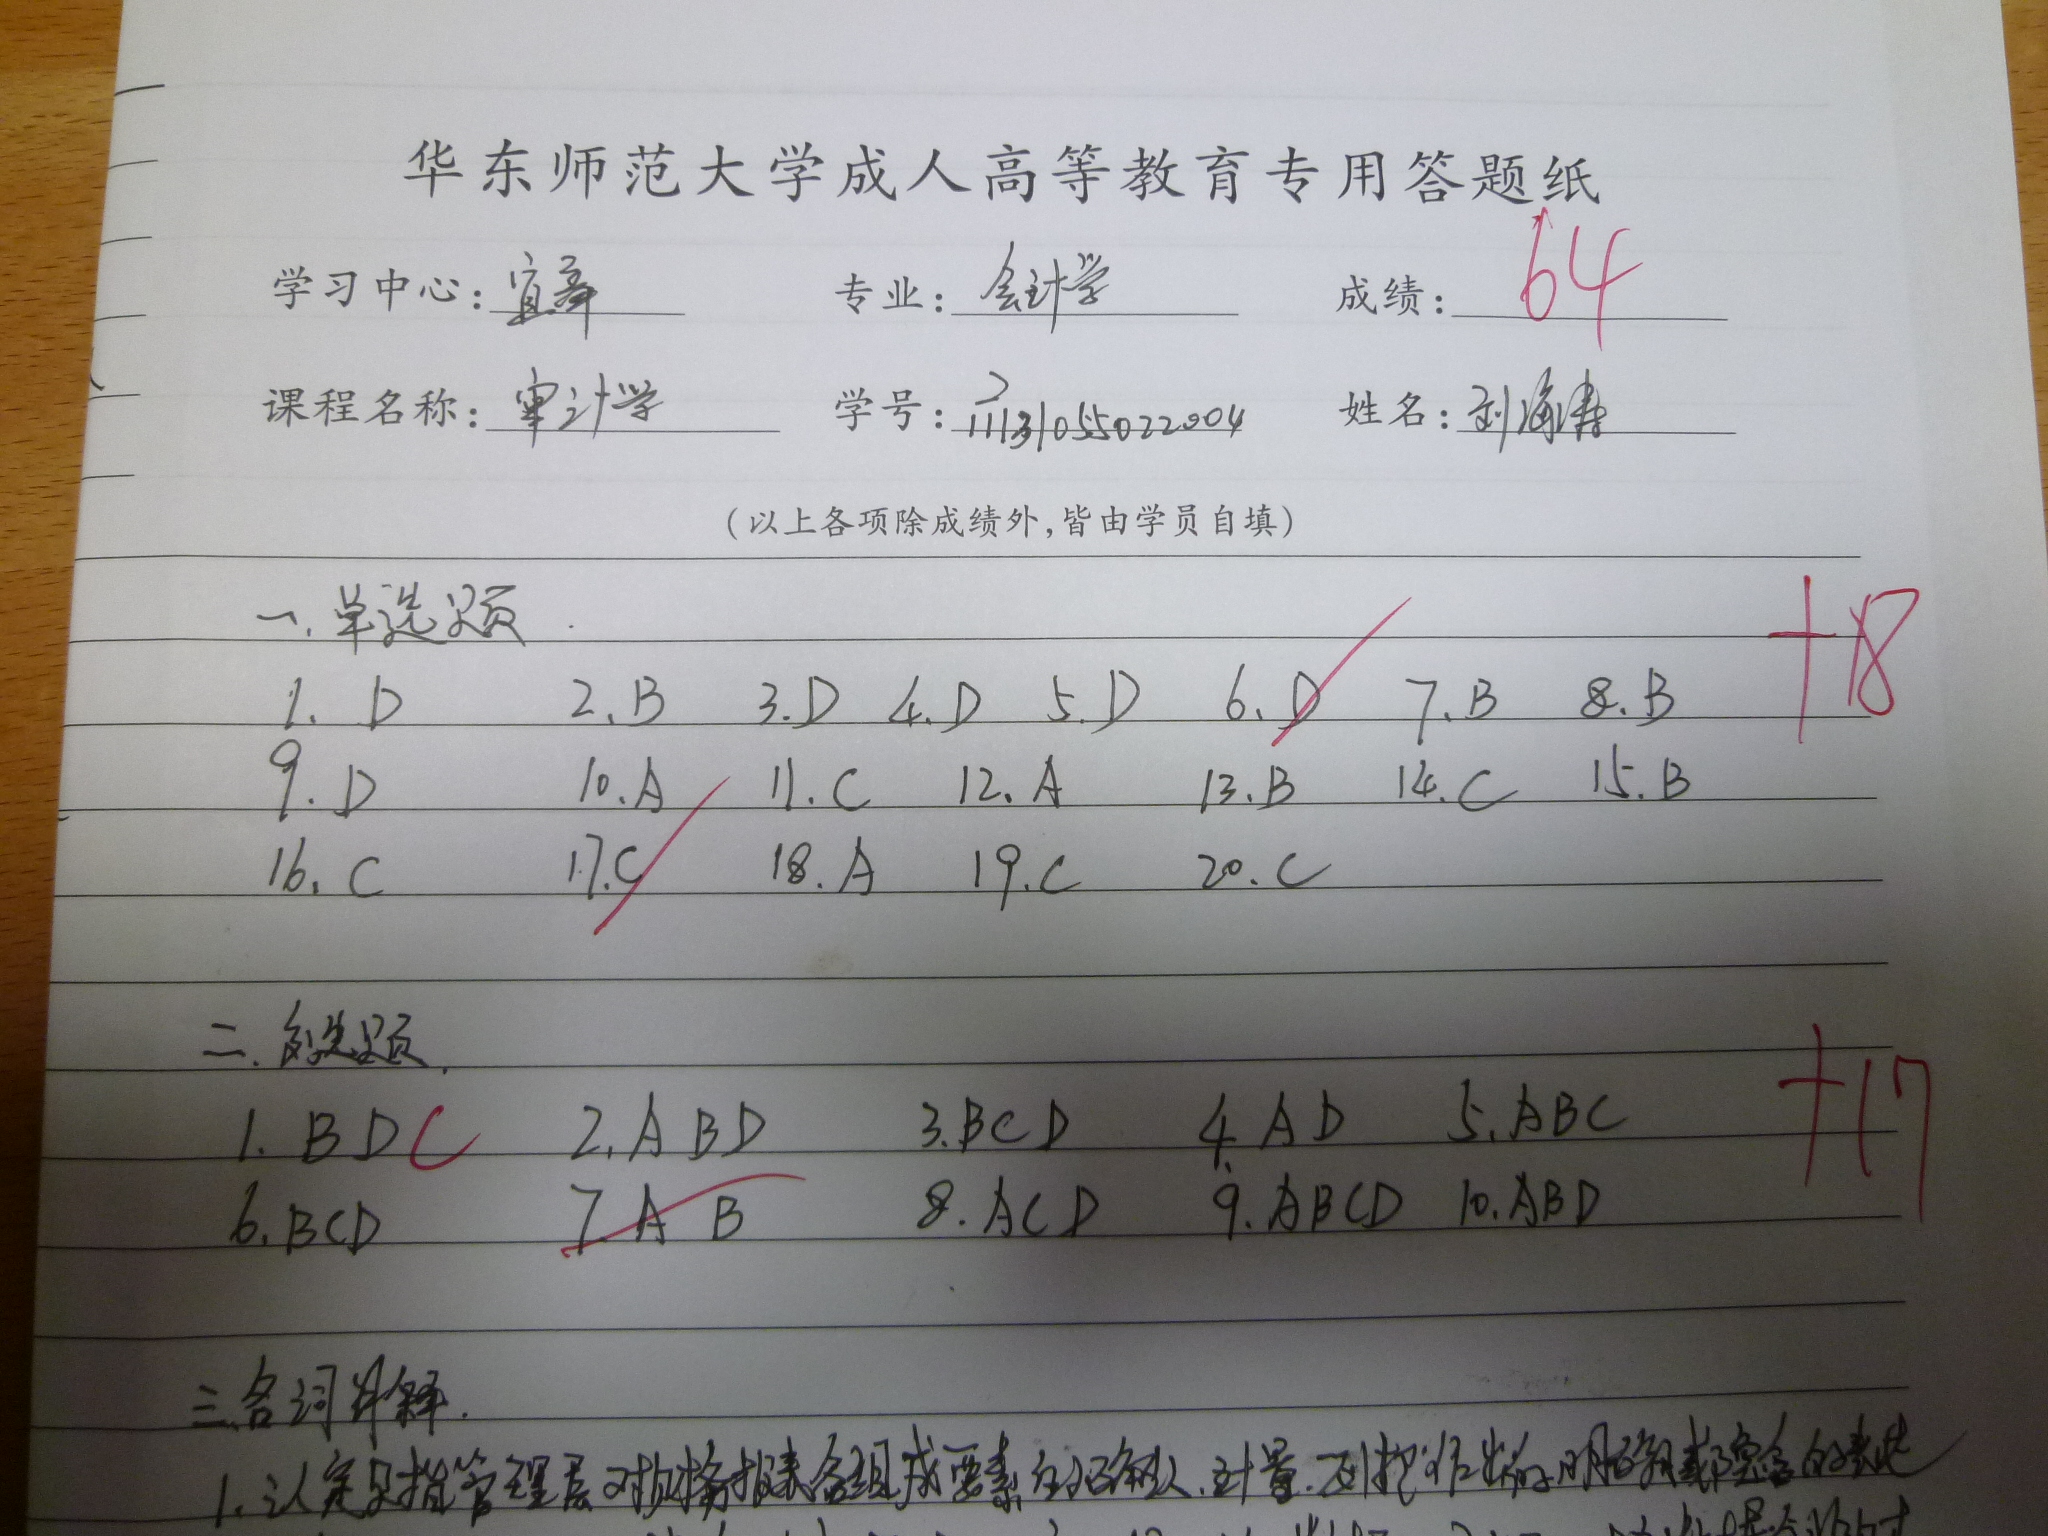 华东师范大学成人高等教育专用答题纸
学习中心: 专业: 会计学 成绩: 64
课程名称: 审计学 学号: 姓名: 刘海涛
(以上各项除成绩外,皆由学员自填)
一. 单选题. +18
1. D 2. B 3. D 4. D 5. D 6. D 7. B 8. B
9. D 10. A 11. C 12. A 13. B 14. C 15. B
16. C 17. C 18. A 19. C 20. C
二. 多选题. +17
1. BDC 2. ABD 3. BCD 4. AD 5. ABC
6. BCD 7. AB 8. ACD 9. ABCD 10. ABD
三. 名词解释.
1. 认定是指管理层对财务报表各组成要素的确认.计量.列报作出的明确或隐含的表达